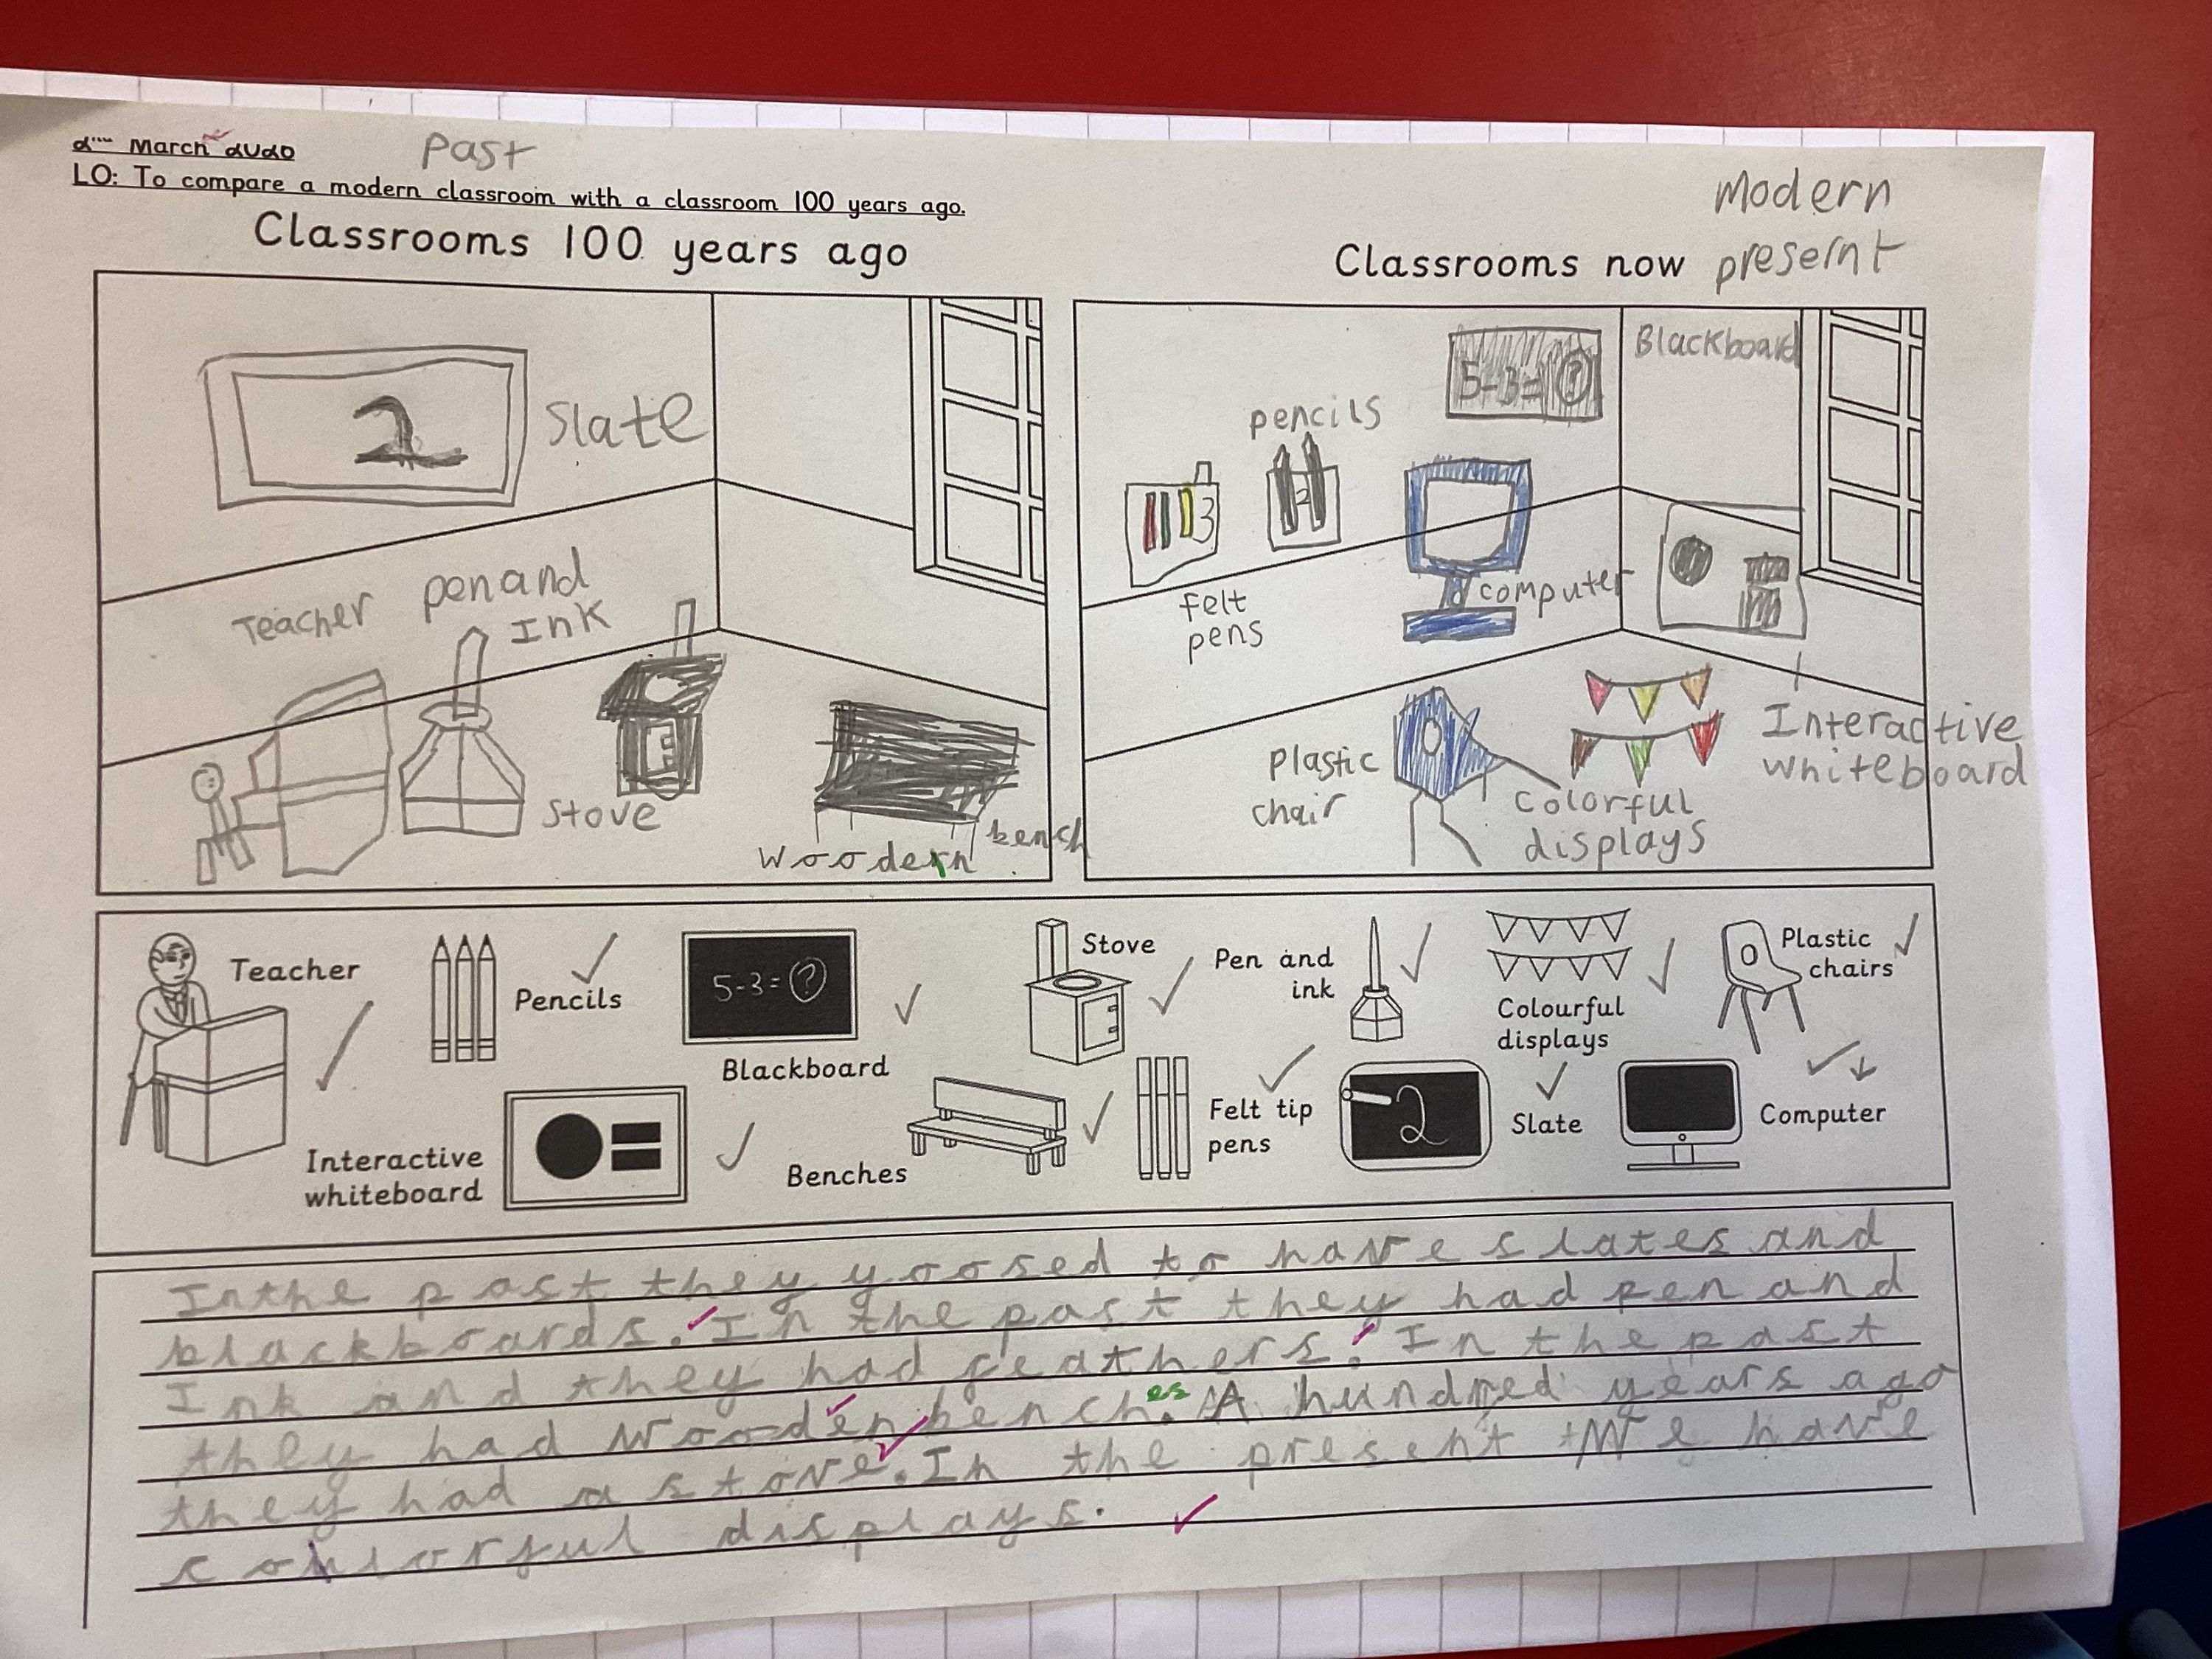 March
Past
LO: To compare a modern classroom with a classroom 100 years ago.
Classrooms 100 years ago
2
Slate
Teacher
pen and
Ink
Stove
Woodern
bench
Modern
Classrooms now
presernt
5-3=?
Blackboard
pencils
2
3
felt
pens
computer
Plastic
chair
colorful
displays
Interactive
whiteboard
Teacher
Pencils
5-3=?
Blackboard
Stove
Pen and
ink
Colourful
displays
Plastic
chairs
Interactive
whiteboard
Benches
Felt tip
pens
2
Slate
Computer
Inthe past they yoosed to have slates and
blackboards. In the past they had pen and
Ink and they had feathers. In the past
they had wooden benches. A hundred years ago
they had a stove. In the present We have
displays.